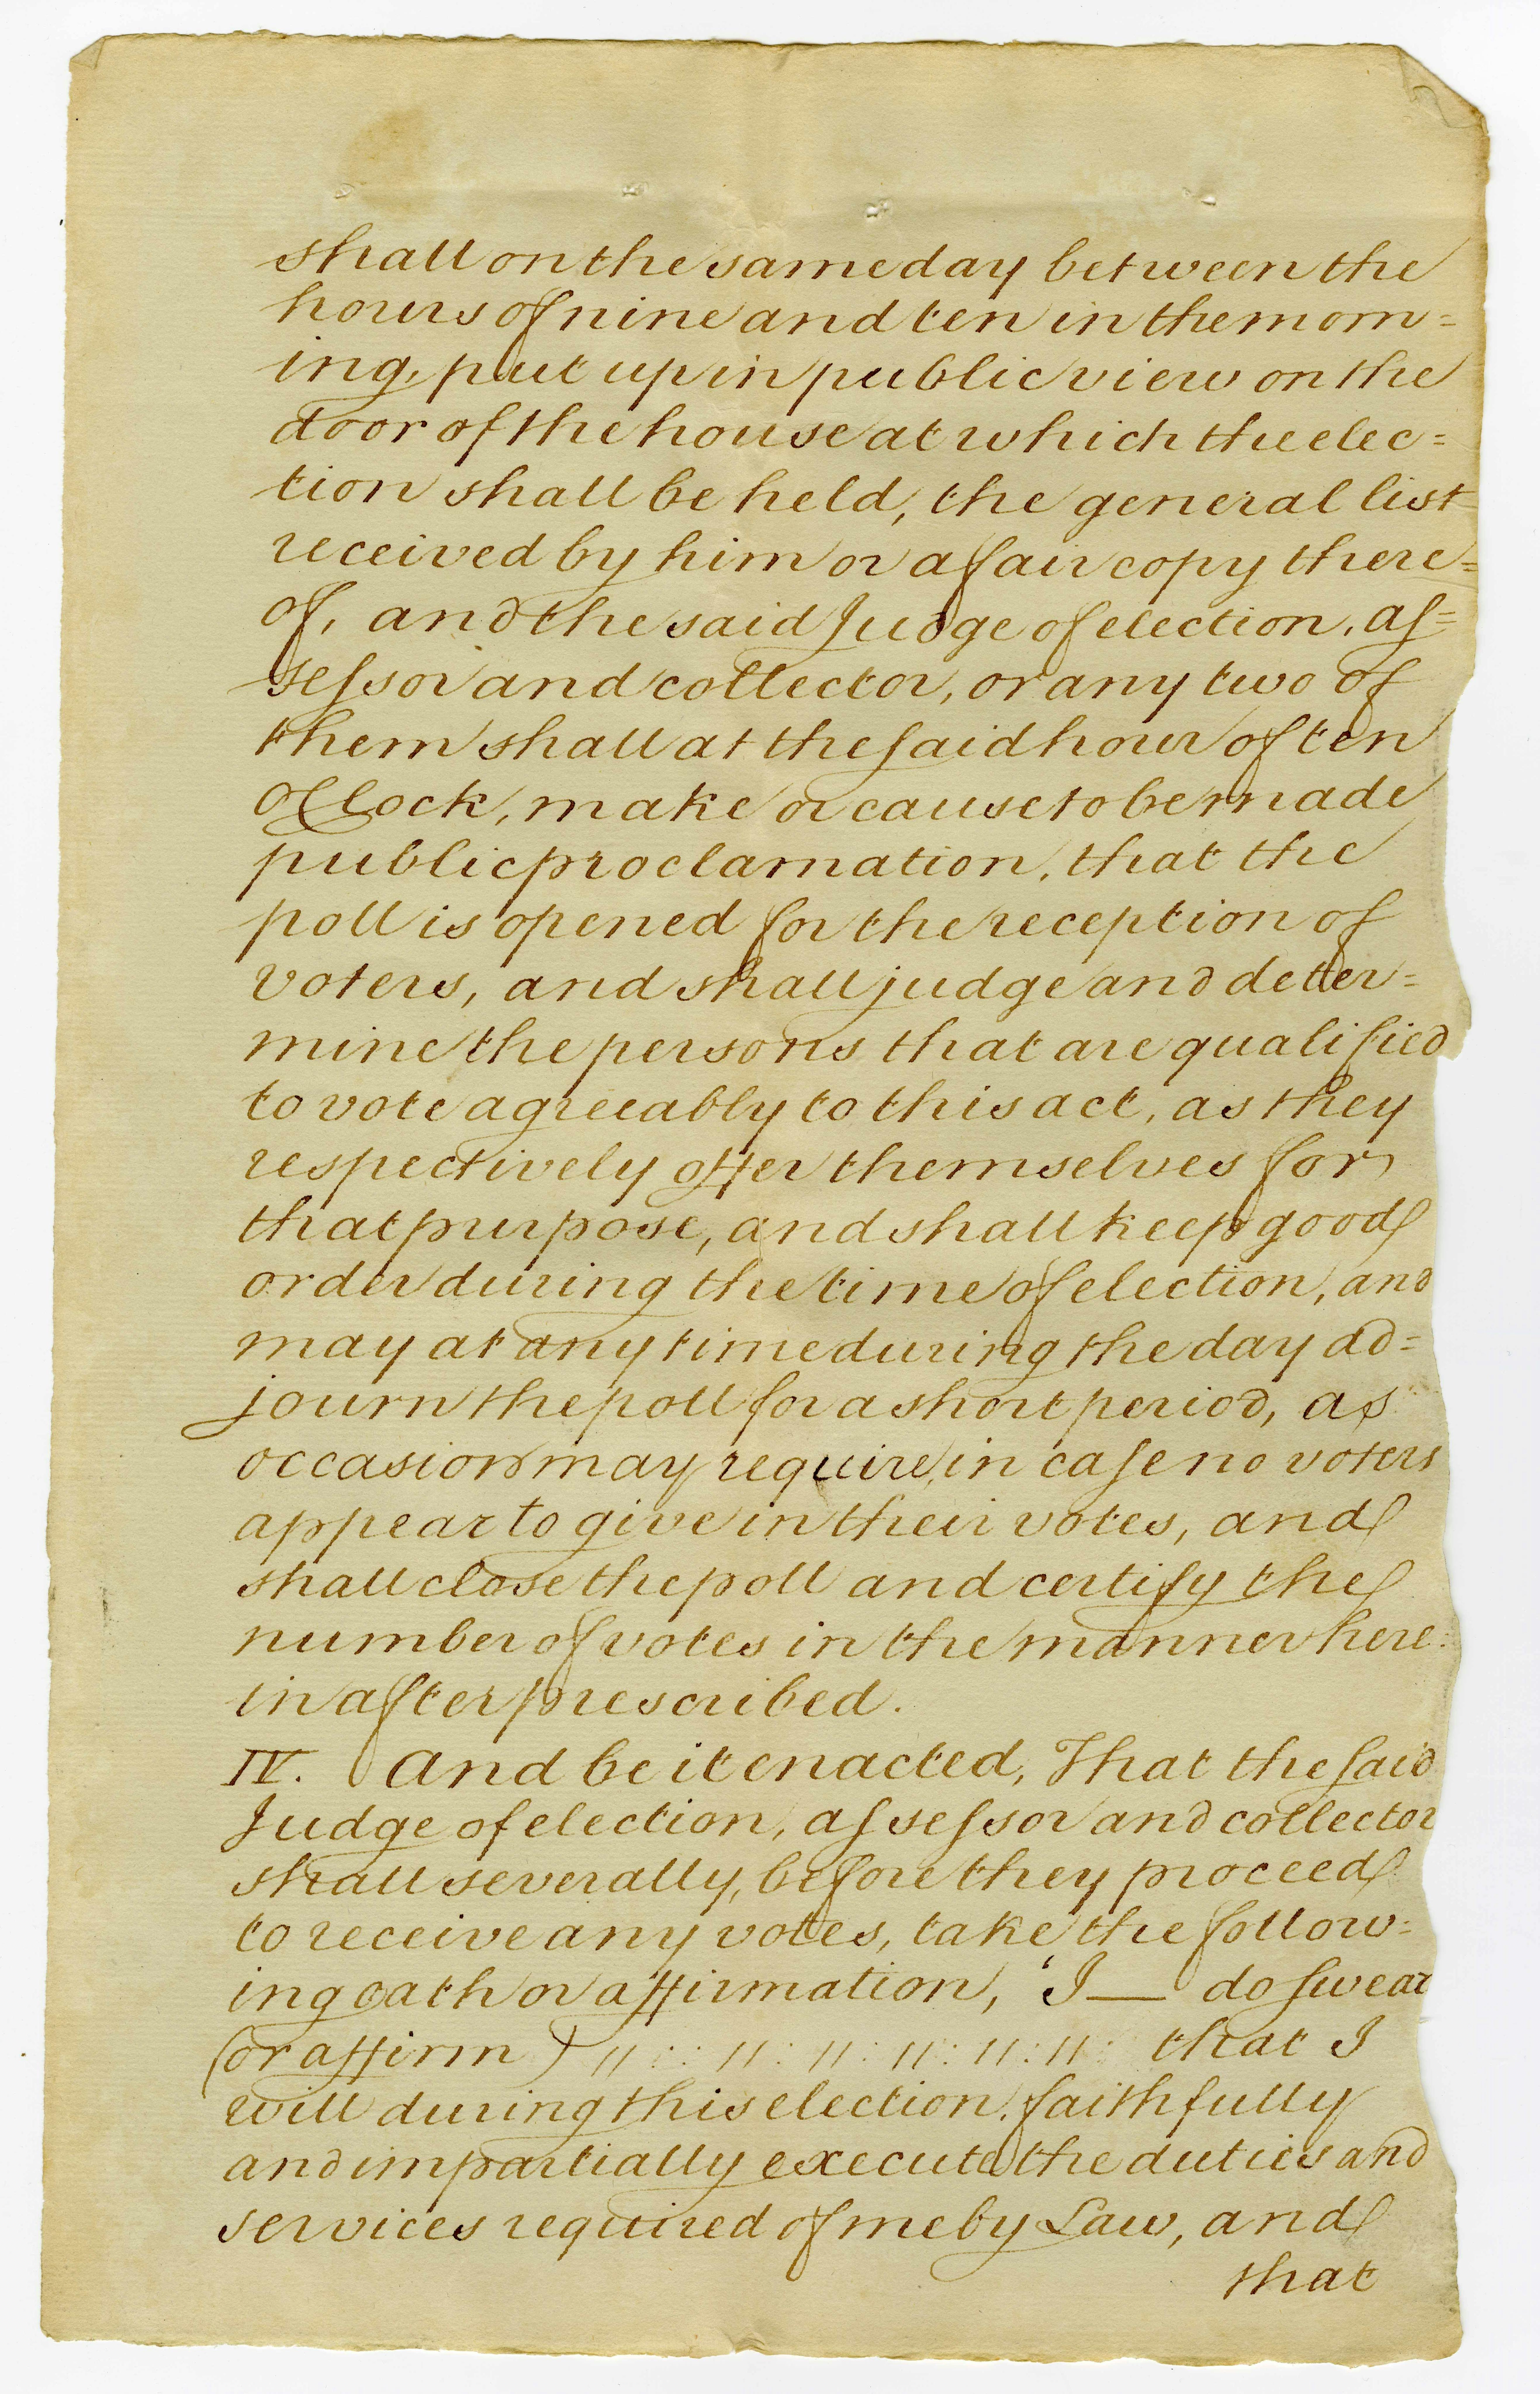 shall on the same day between the
hours of nine and ten in the morn=
ing, put up in public view on the
door of the house at which the elec=
tion shall be held, the general list
received by him or a fair copy there=
of, and the said Judge of election, as=
sessor and collector, or any two of
them shall at the said hour of ten
oClock, make or cause to be made
public proclamation, that the
poll is opened for the reception of
voters, and shall judge and deter=
mine the persons that are qualified
to vote agreeably to this act, as they
respectively offer themselves for
that purpose, and shall keep good
order during the time of election, and
may at any time during the day ad=
journ the poll for a short period, as
occasion may require, in case no voters
appear to give in their votes, and
shall close the poll and certify the
number of votes in the manner here=
in after prescribed.
IV. And be it enacted, That the said
Judge of election, assessor and collector
shall severally, before they proceed
to receive any votes, take the follow=
ing oath or affirmation, 'I — do swear
(or affirm) 〃 : : 〃 : 〃 : 〃 : 〃 : 〃 : that I
will during this election, faithfully
and impartially execute the duties and
services required of me by Law, and
that